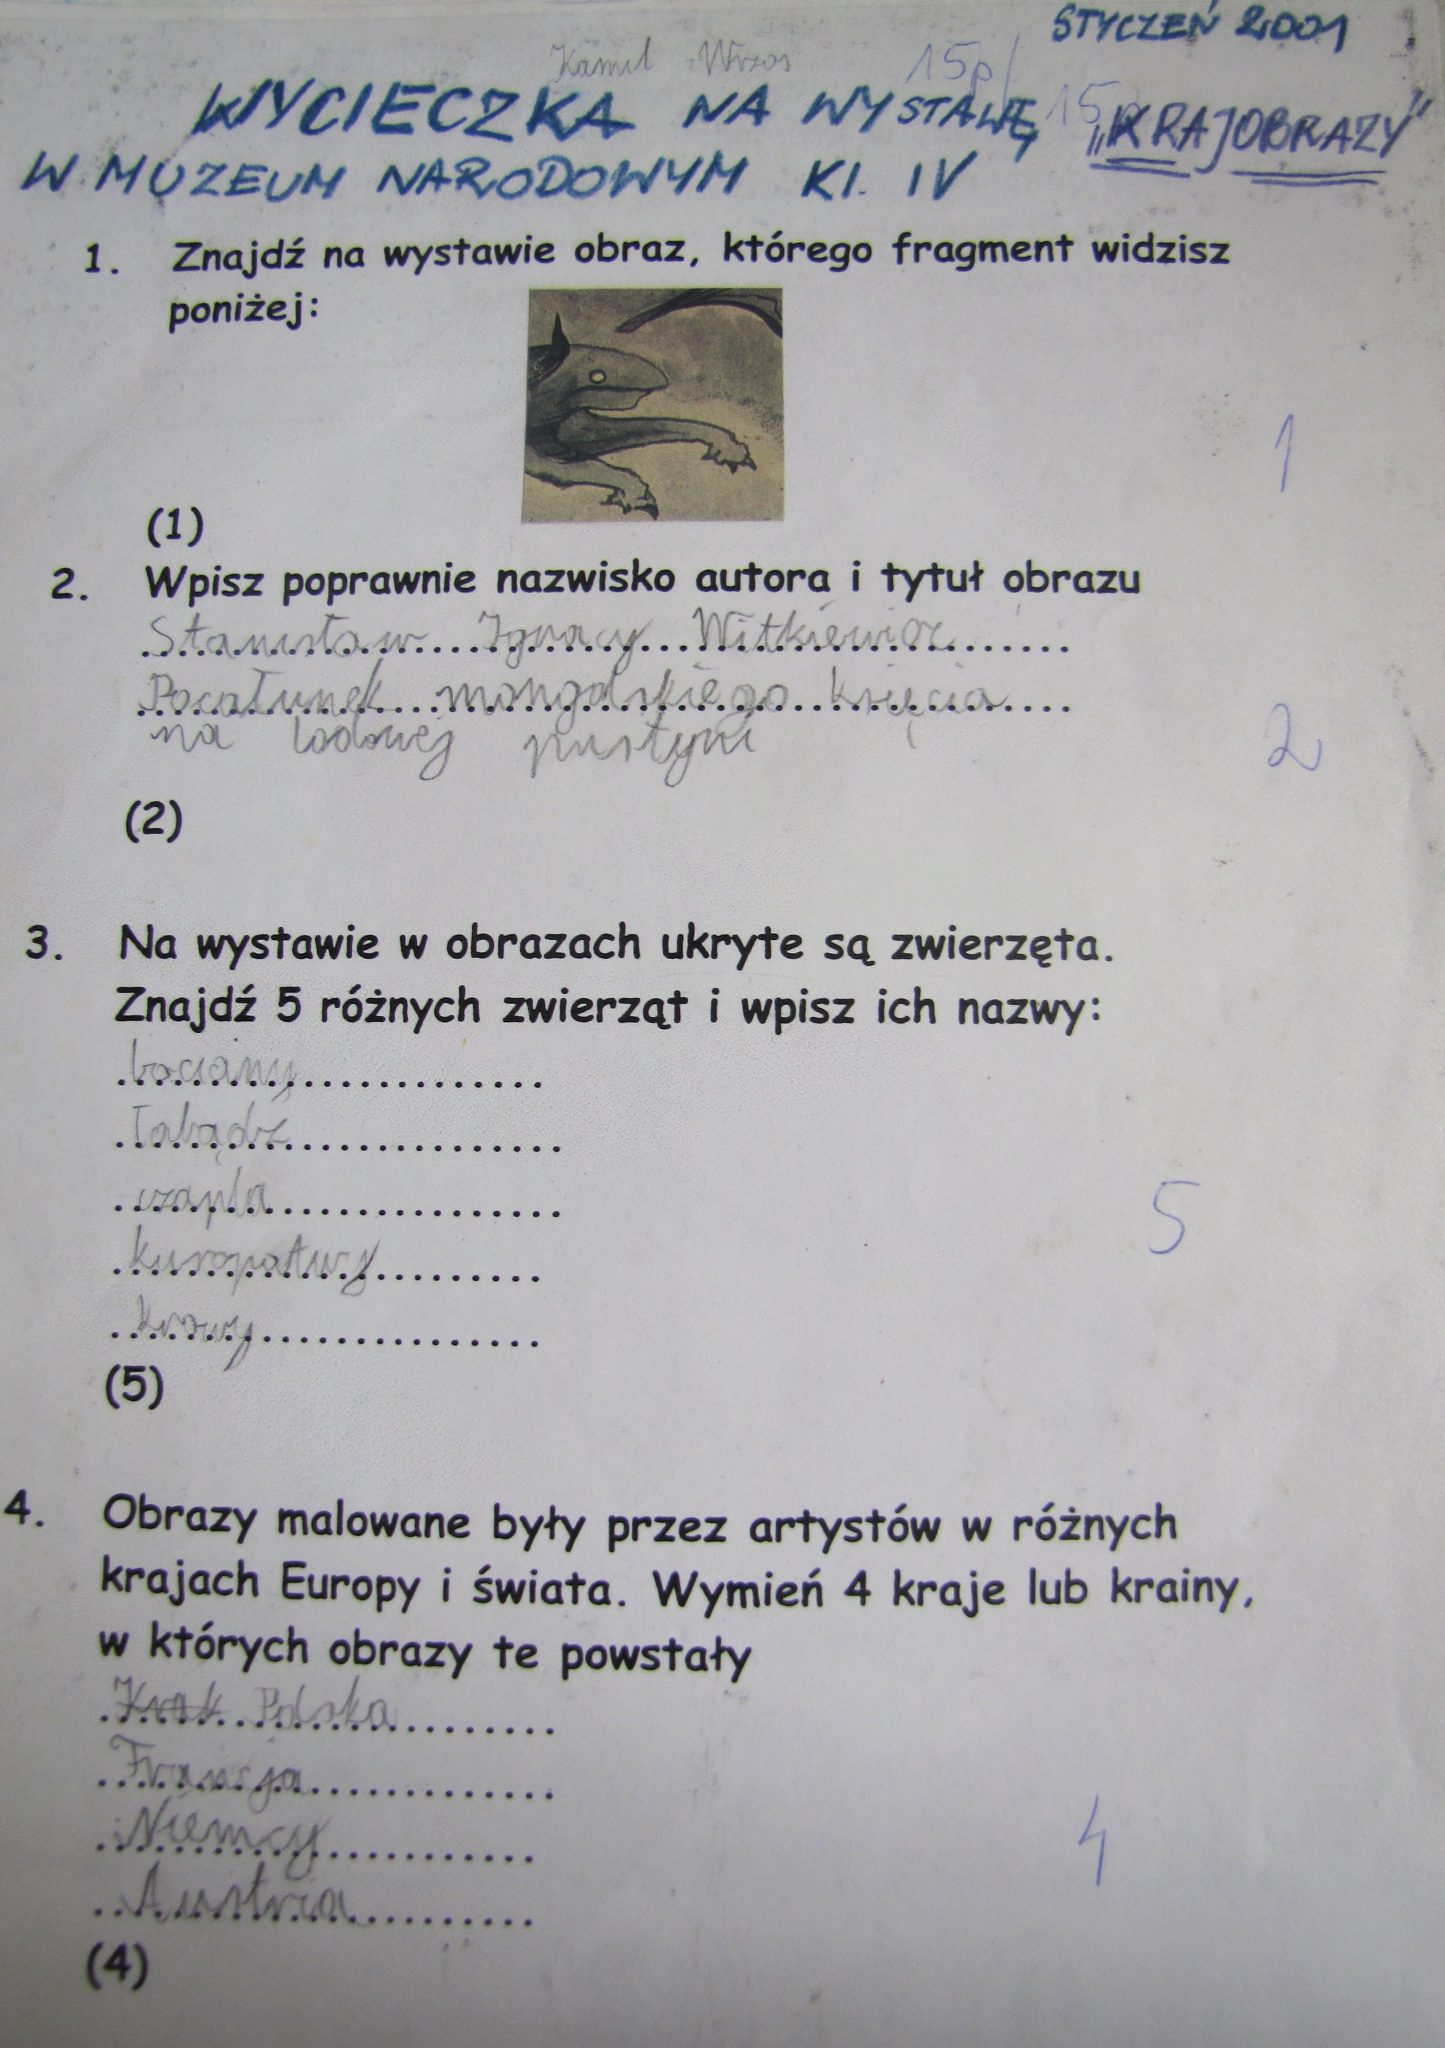 STYCZEŃ 2001
Kamil Wrzos 15p/15p
WYCIECZKA NA WYSTAWĘ „KRAJOBRAZY"
W MUZEUM NARODOWYM Kl. IV
1. Znajdź na wystawie obraz, którego fragment widzisz
poniżej:
1
(1)
2. Wpisz poprawnie nazwisko autora i tytuł obrazu
Stanisław Ignacy Witkiewicz
Pocałunek mongolskiego księcia
na lodowej pustyni
2
(2)
3. Na wystawie w obrazach ukryte są zwierzęta.
Znajdź 5 różnych zwierząt i wpisz ich nazwy:
bociany
łabądź
czapla
5
kuropatwy
krowy
(5)
4. Obrazy malowane były przez artystów w różnych
krajach Europy i świata. Wymień 4 kraje lub krainy,
w których obrazy te powstały
Krak Polska
Francja
Niemcy
4
Austria
(4)